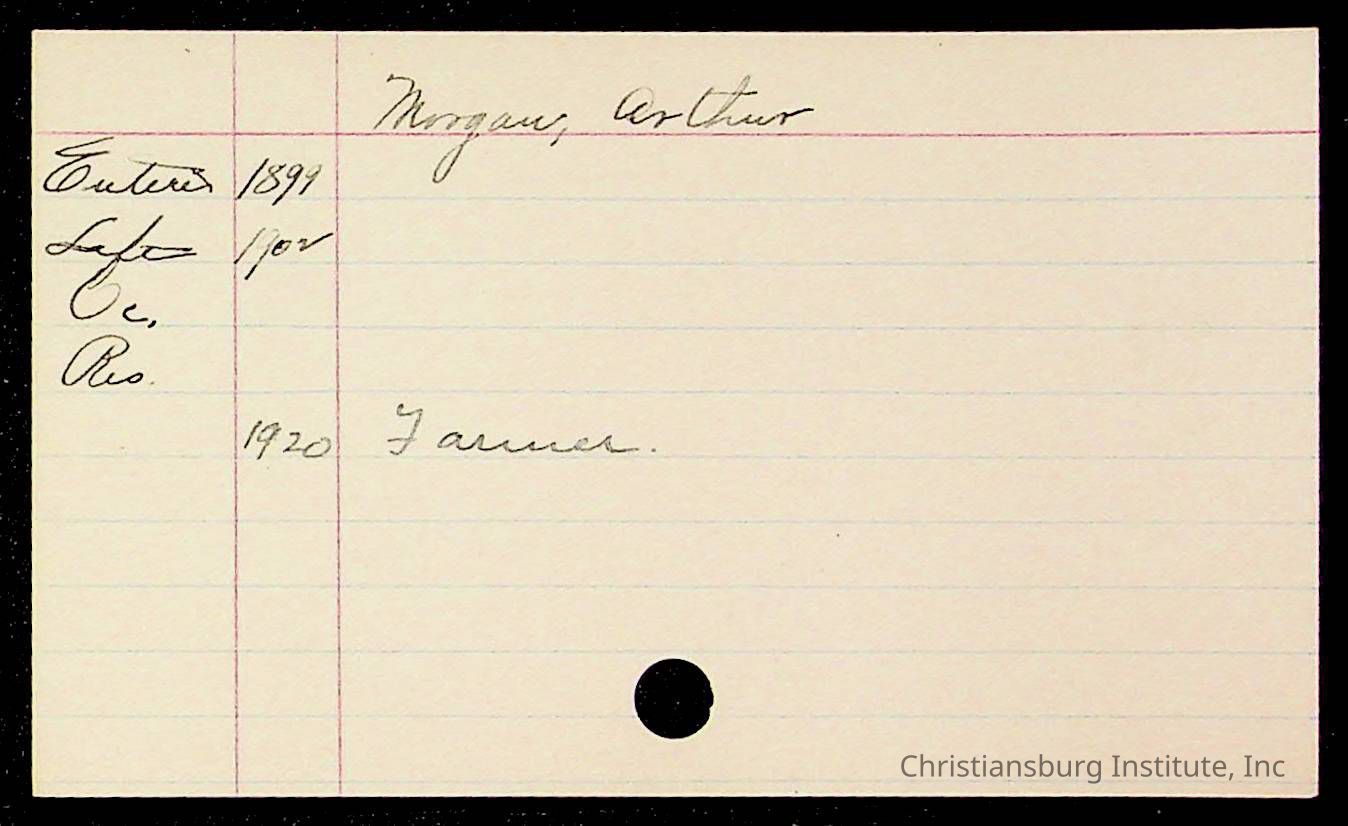 Morgan, Arthur
Entered 1899
Left 1902
Oc.
Res.
1920 Farmer.
Christiansburg Institute, Inc